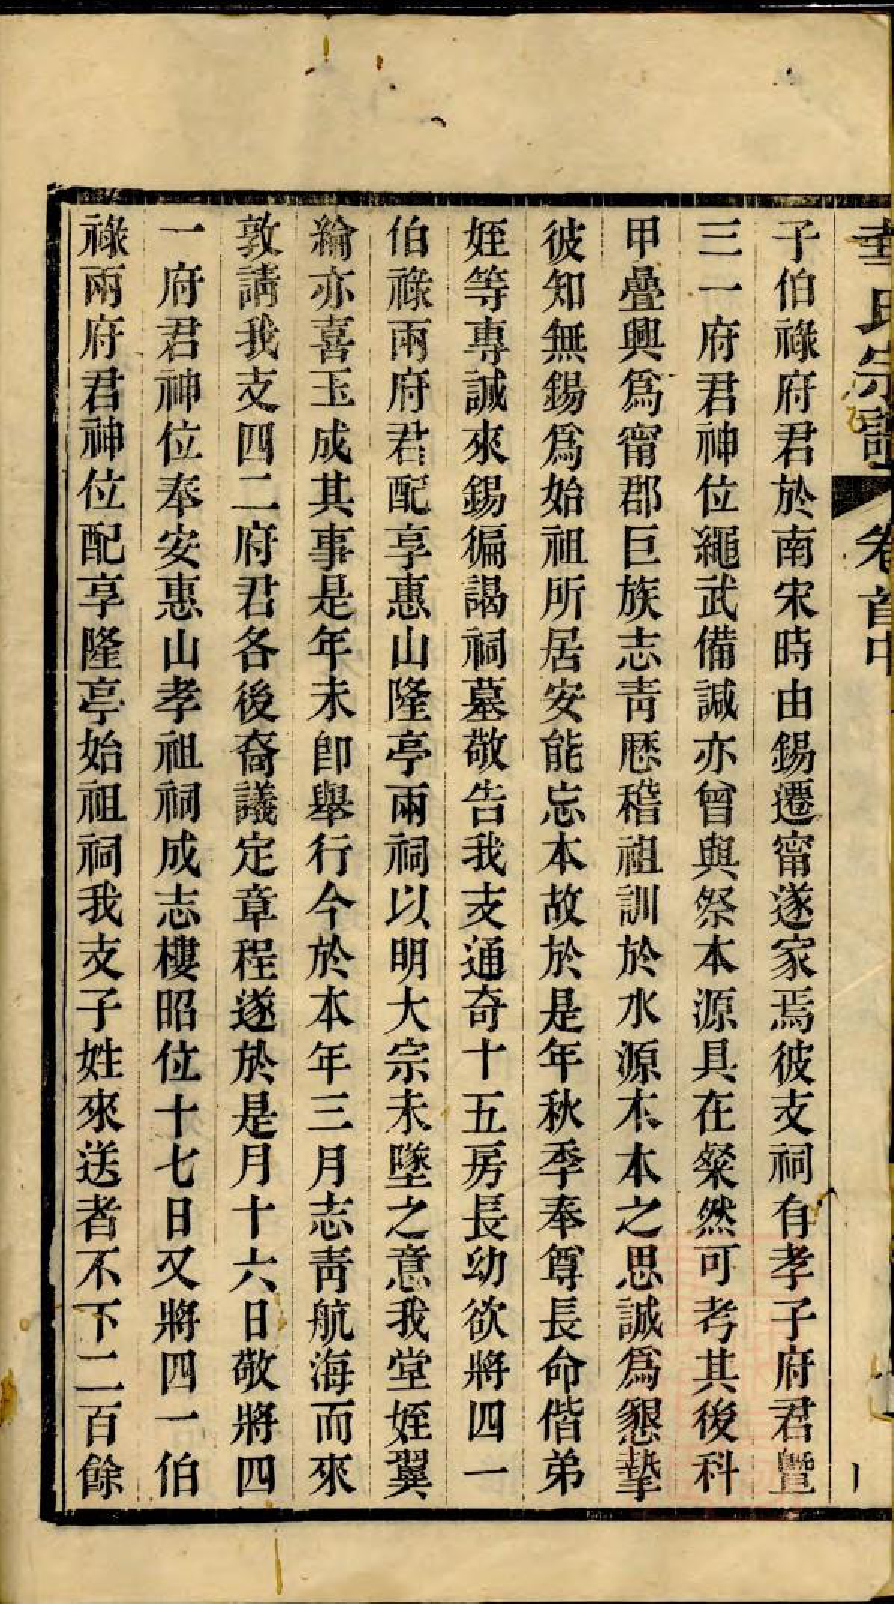 華氏宗譜 卷首中
子伯祿府君於南宋時由錫遷甯遂家焉彼支祠有孝子府君曁
三一府君神位繩武備諴亦曾與祭本源具在粲然可考其後科
甲疊興爲甯郡巨族志靑歷稽祖訓於水源木本之思誠爲懇摯
彼知無錫爲始祖所居安能忘本故於是年秋季奉尊長命偕弟
姪等專誠來錫徧謁祠墓敬告我支通奇十五房長幼欲將四一
伯祿兩府君配享惠山隆亭兩祠以明大宗未墜之意我堂姪翼
綸亦喜玉成其事是年未卽舉行今於本年三月志靑航海而來
敦請我支四二府君各後裔議定章程遂於是月十六日敬將四
一府君神位奉安惠山孝祖祠成志樓昭位十七日又將四一伯
祿兩府君神位配享隆亭始祖祠我支子姓來送者不下二百餘